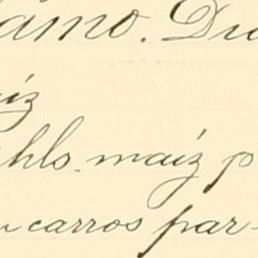 ámo. Du
iz
hls. maiz p
carros par-